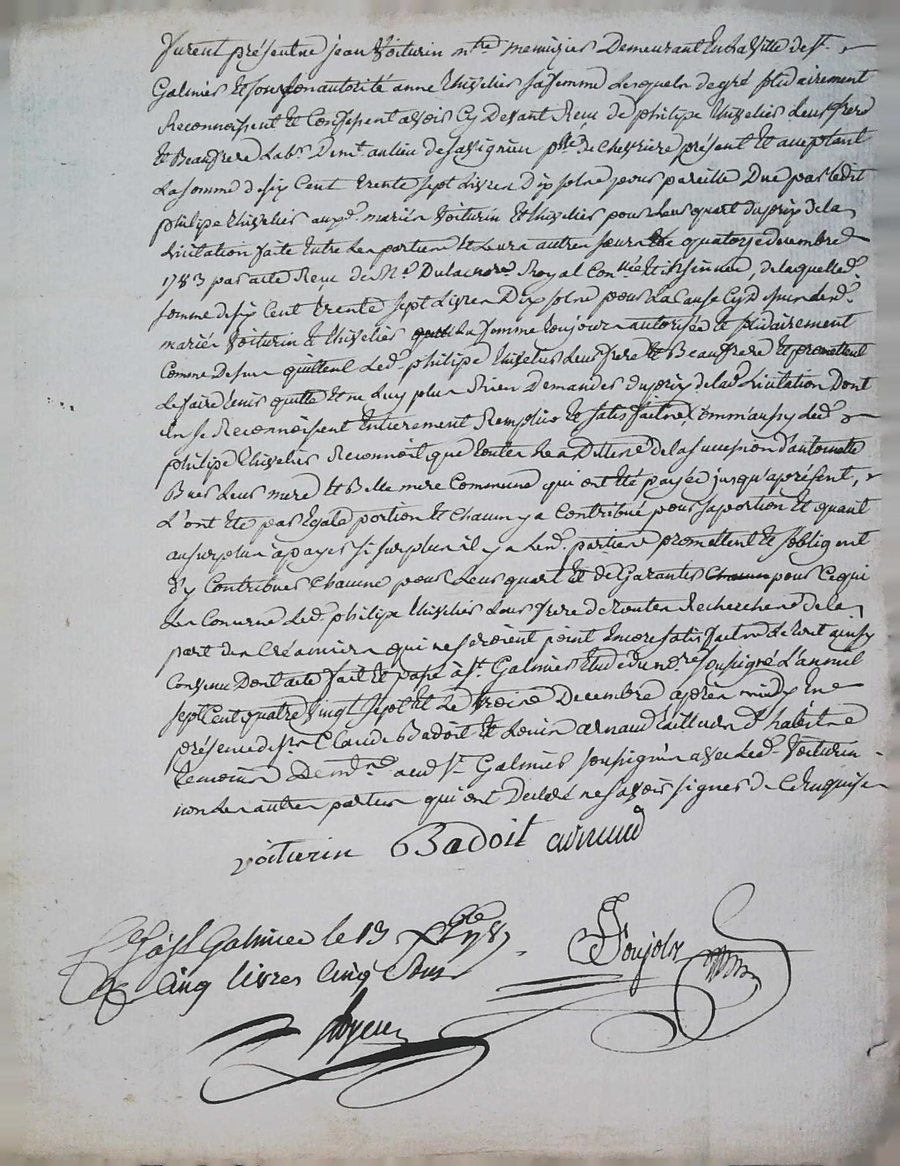 furent présents jean Voiturin mtre menuisier Demeurant En la Ville de st
Galmier Et sous son autorité anne thivelier sa femme Lesquels de gré solidairement
Reconnoissent Et Confessent avoir Cy Devant Reçu de philipe thivelier Leur frere
Et Beaufrere Labr Demt au lieu de savignieu psse de Chevriere présent Et acceptant
La somme de six Cent trente sept Livres Dix sols pour pareille Due par Ledit
philipe thivelier aux d mariés Voiturin Et thivelier pour Leur quart du prix de la
Licitation faite Entre Les parties Et Leurs autres soeurs Le quatorze decembre
1783 par acte Reçu de Me Royal Conlle Et insinué, de laquelle d
somme de six Cent trente sept Livres Dix sols pour La Cause Cy Dessus Les d
mariés Voiturin Et thivelier La femme toujours autorisée Et solidairement
Comme Dessus quittent Led philipe thivelier Leur frere Et Beaufrere Et promettent
Le faire tenir quitte Et ne Luy plus Rien Demander du prix de lad Licitation Dont
ils se Reconnoissent Entierement Remplis Et satisfaits, Comm'aussy Led
philipe thivelier Reconnoit que toutes Les Dettes de la succession d'antoinette
Leur mere Et Belle mere Commune qui ont Eté payée jusqu'aprésent,
L'ont Eté par Egale portion Et Chacun y a Contribué pour sa portion Et quant
au surplus à payer si surplus il y a Les d parties promettent Et s'obligent
d'y Contribuer Chacune pour Leur quart Et de Garantir pour Ce qui
Les Concerne Led philipe thivelier Leur frere de toutes Recherches de la
part des Créanciers qui ne seroient point Encore satisfaits Le tout ainsy
Convenu Dont acte fait Et passé à st Galmier Etude du nre soussigné L'an mil
sept Cent quatre vingt sept Et Le treize Decembre après midy En
présence de sr Claude Badoit Et Louis arnaud tailleur d'habits
temoins Demts aud st Galmier soussignés avec Led Voiturin
non Les autres parties qui ont Declaré ne savoir signer de Ce Enquises
voiturin Badoit arnaud
Cé à st Galmier le 13 xbre 1787
Reçu Cinq livres Cinq sous
Poujols